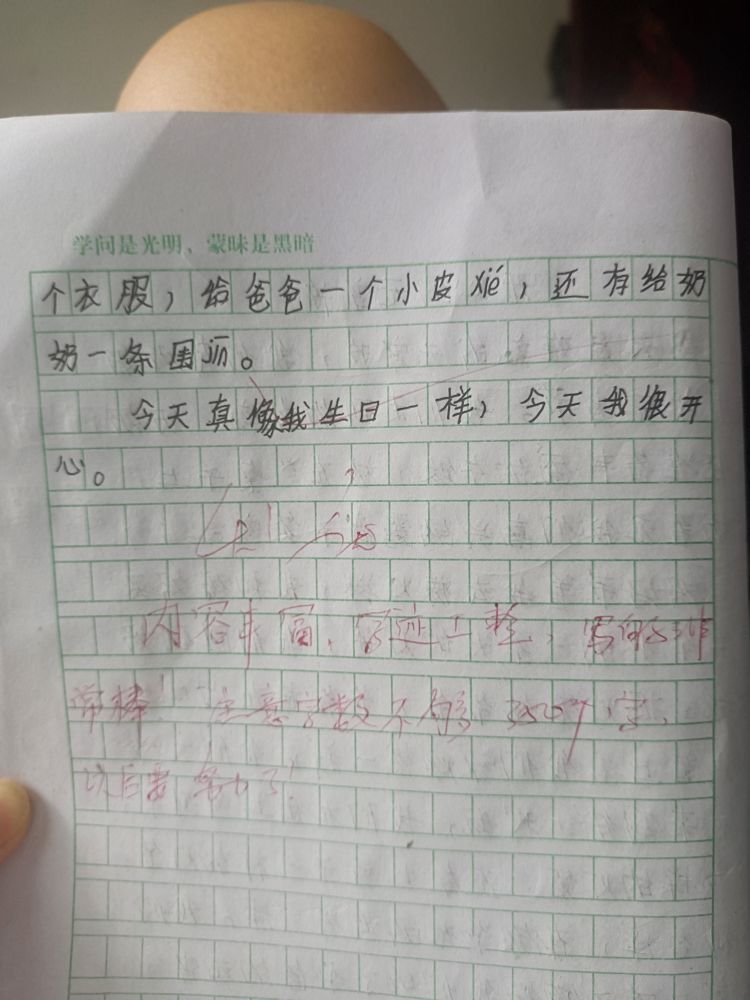 学问是光明、蒙昧是黑暗
个衣服，给爸爸一个小皮xié，还有给奶
奶一条围jīn。
今天真像我生日一样，今天我很开
心。
内容丰富，字迹工整，写的非
常棒！注意字数不够350个字，
以后要努力了！